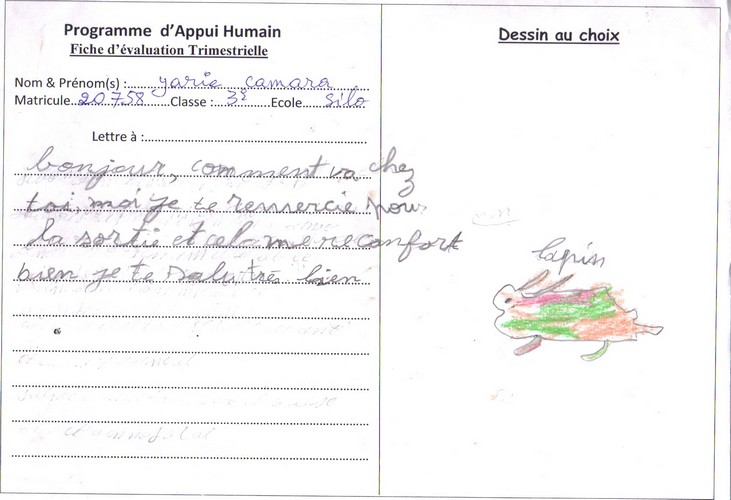 Programme d'Appui Humain
Fiche d'évaluation Trimestrielle
Nom & Prénom(s) : yarie camara
Matricule 20758 Classe : 3è Ecole silo
Lettre à :
bonjour, comment va chez
toi, moi je te remercie pour
la sortie et cela me reconfort
bien je te salu très bien
Dessin au choix
lapin